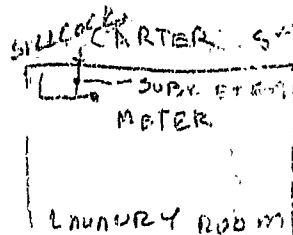 SILLCOCK
CARTER ST
METER
LAUNDRY ROOM